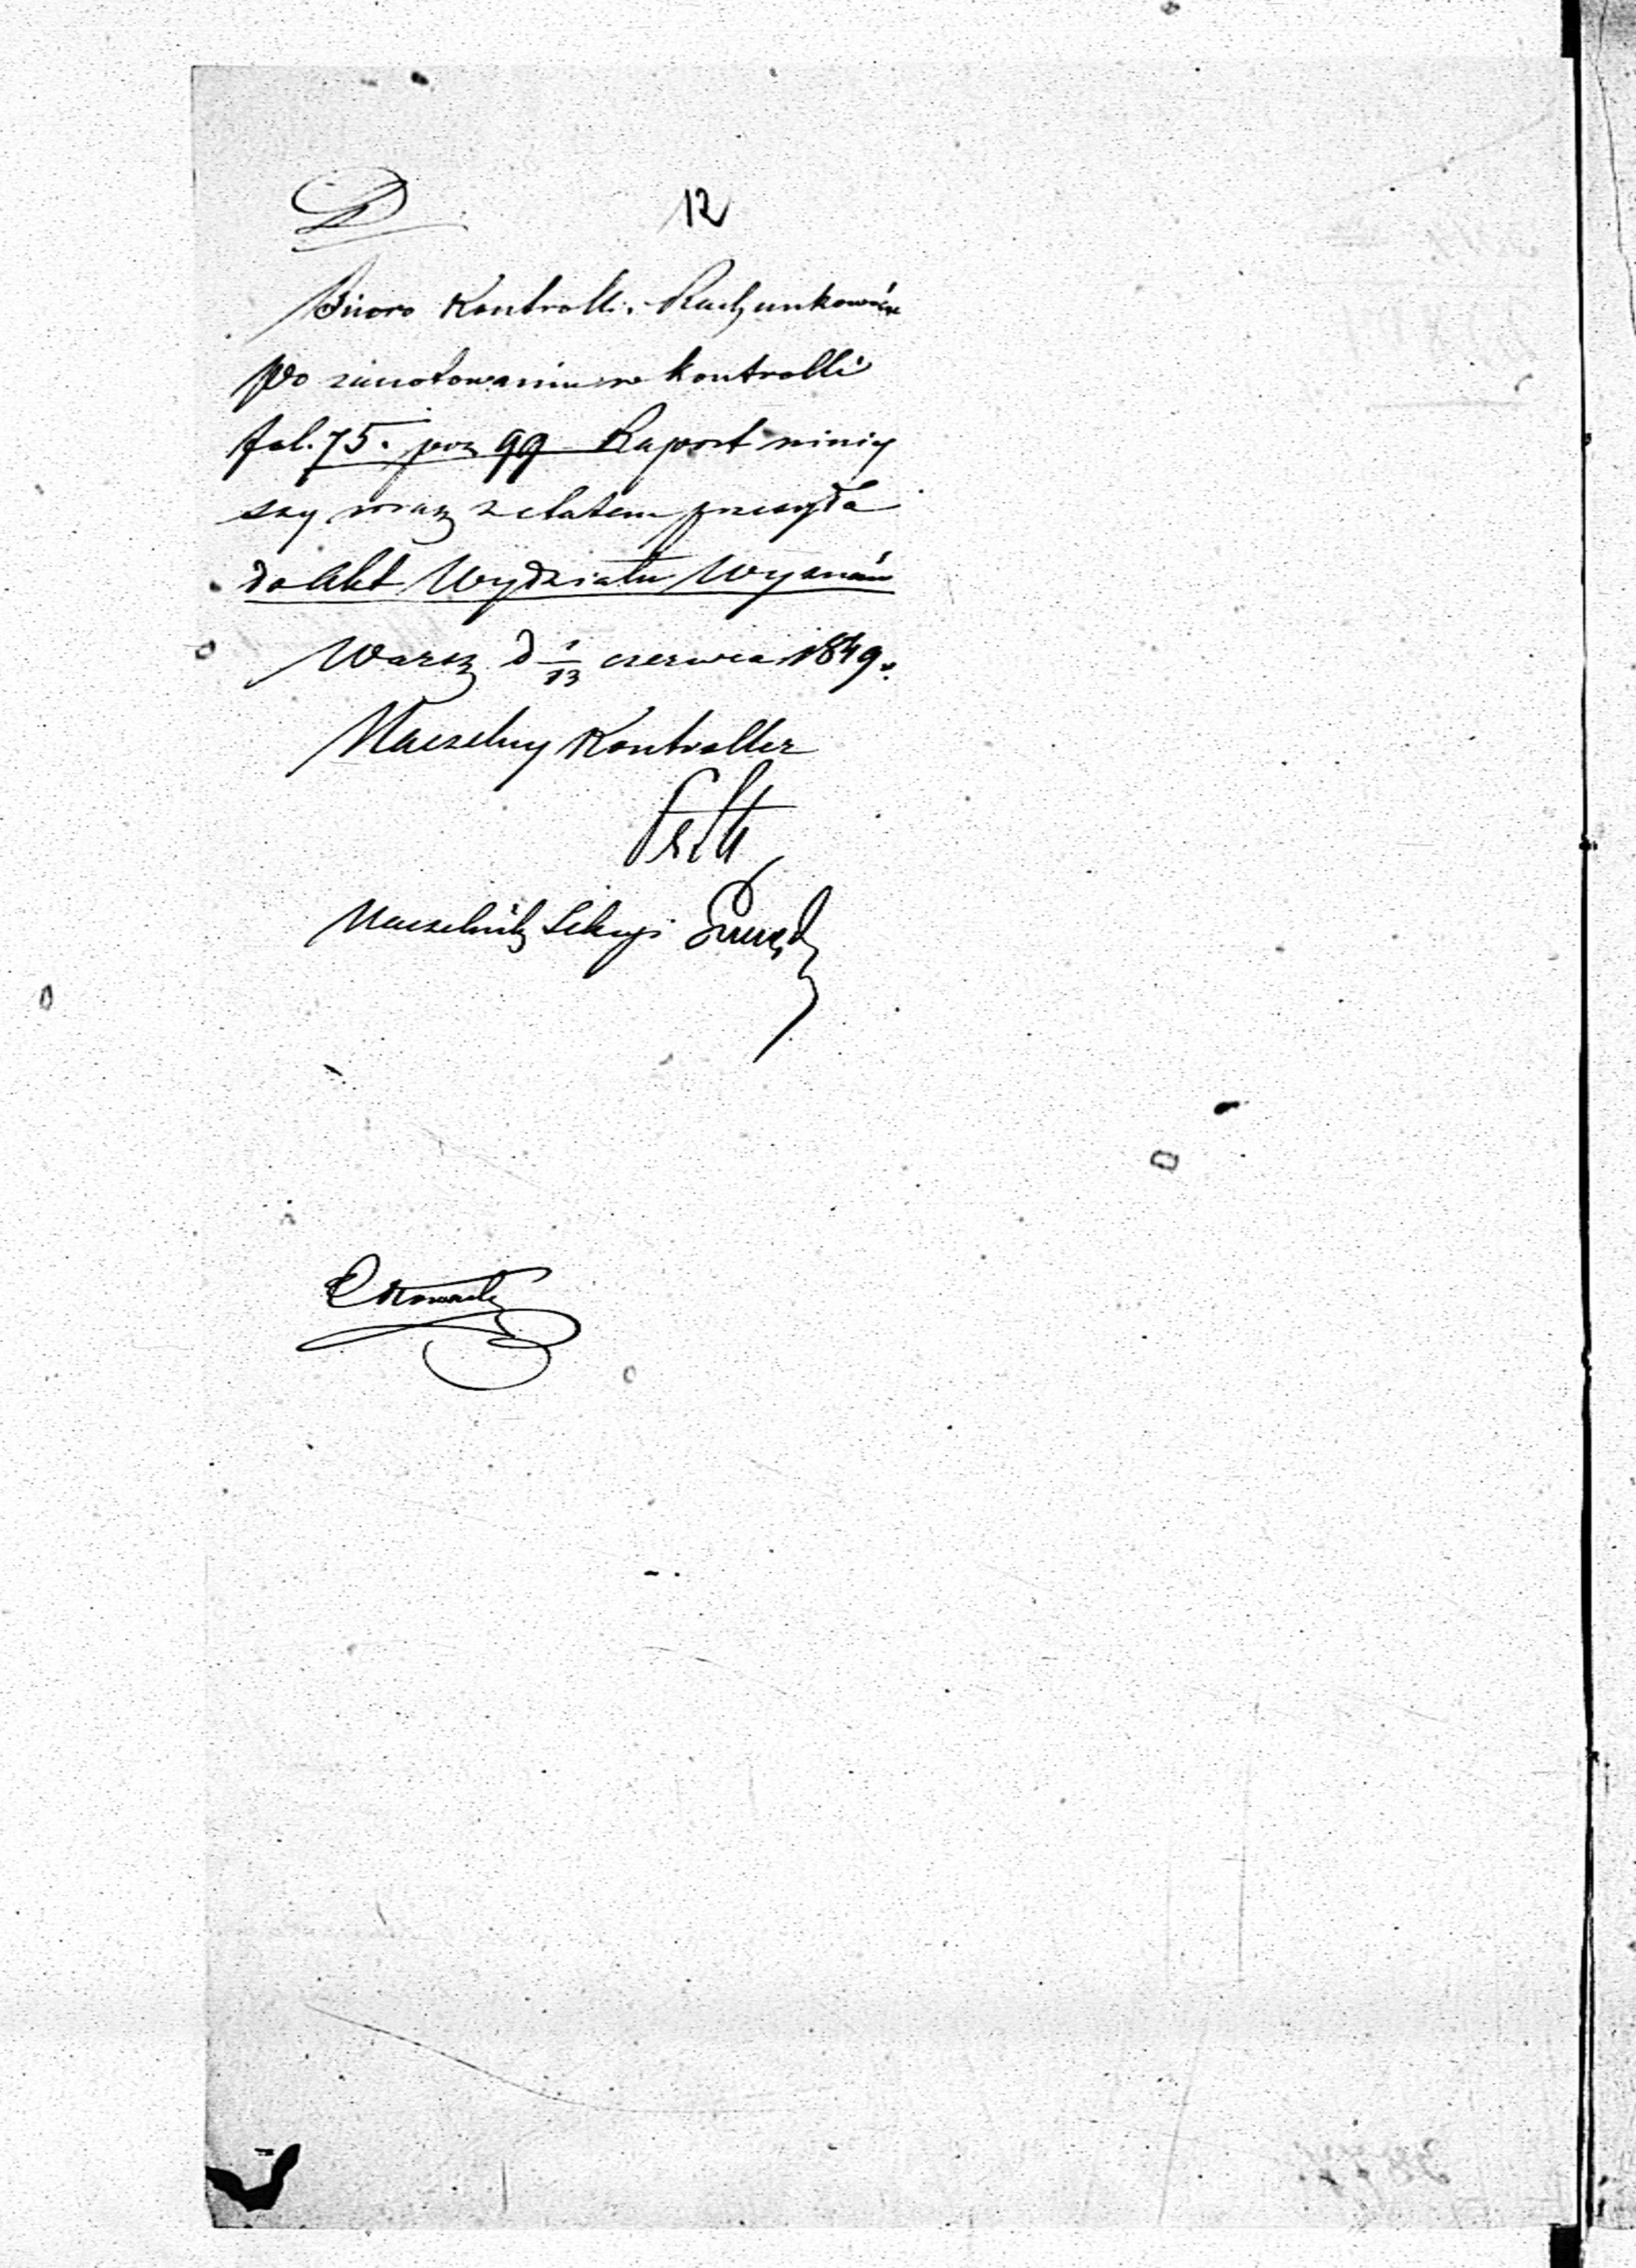 12
Biuro Kontrolli Rachunkowéy
po zanotowaniu w kontrolli
fol. 75. poz 99 Raport niniey
szy wraz z etatem przesyła
do Akt Wydziału Wyznań
Warsz d 1/13 czerwca 1849 r.
Naczelny Kontroller
Naczelnik Sekcyi